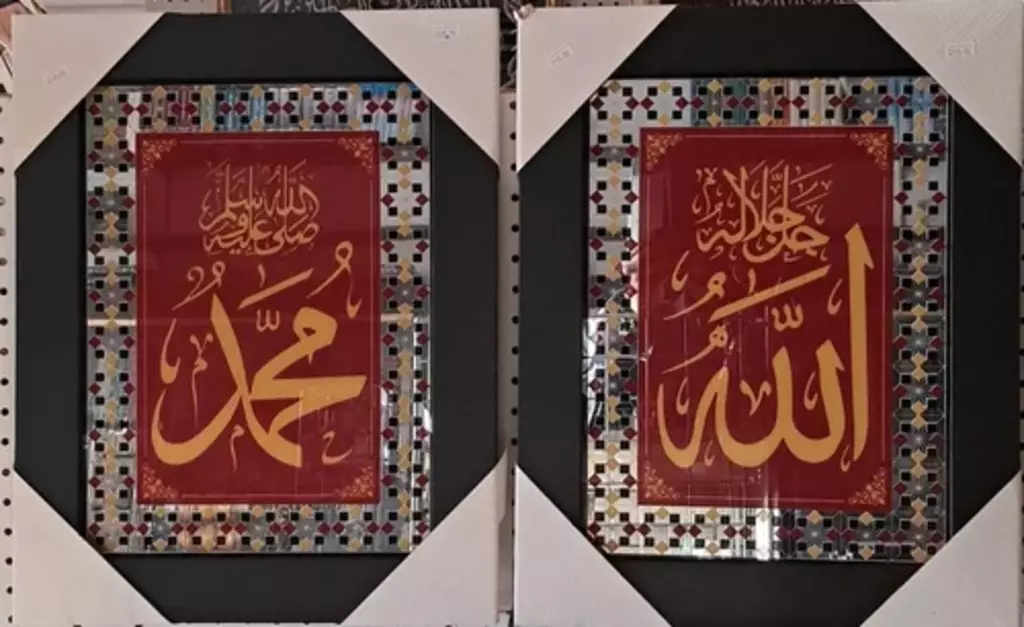 جل جلاله
الله
صلى الله عليه وسلم
محمد